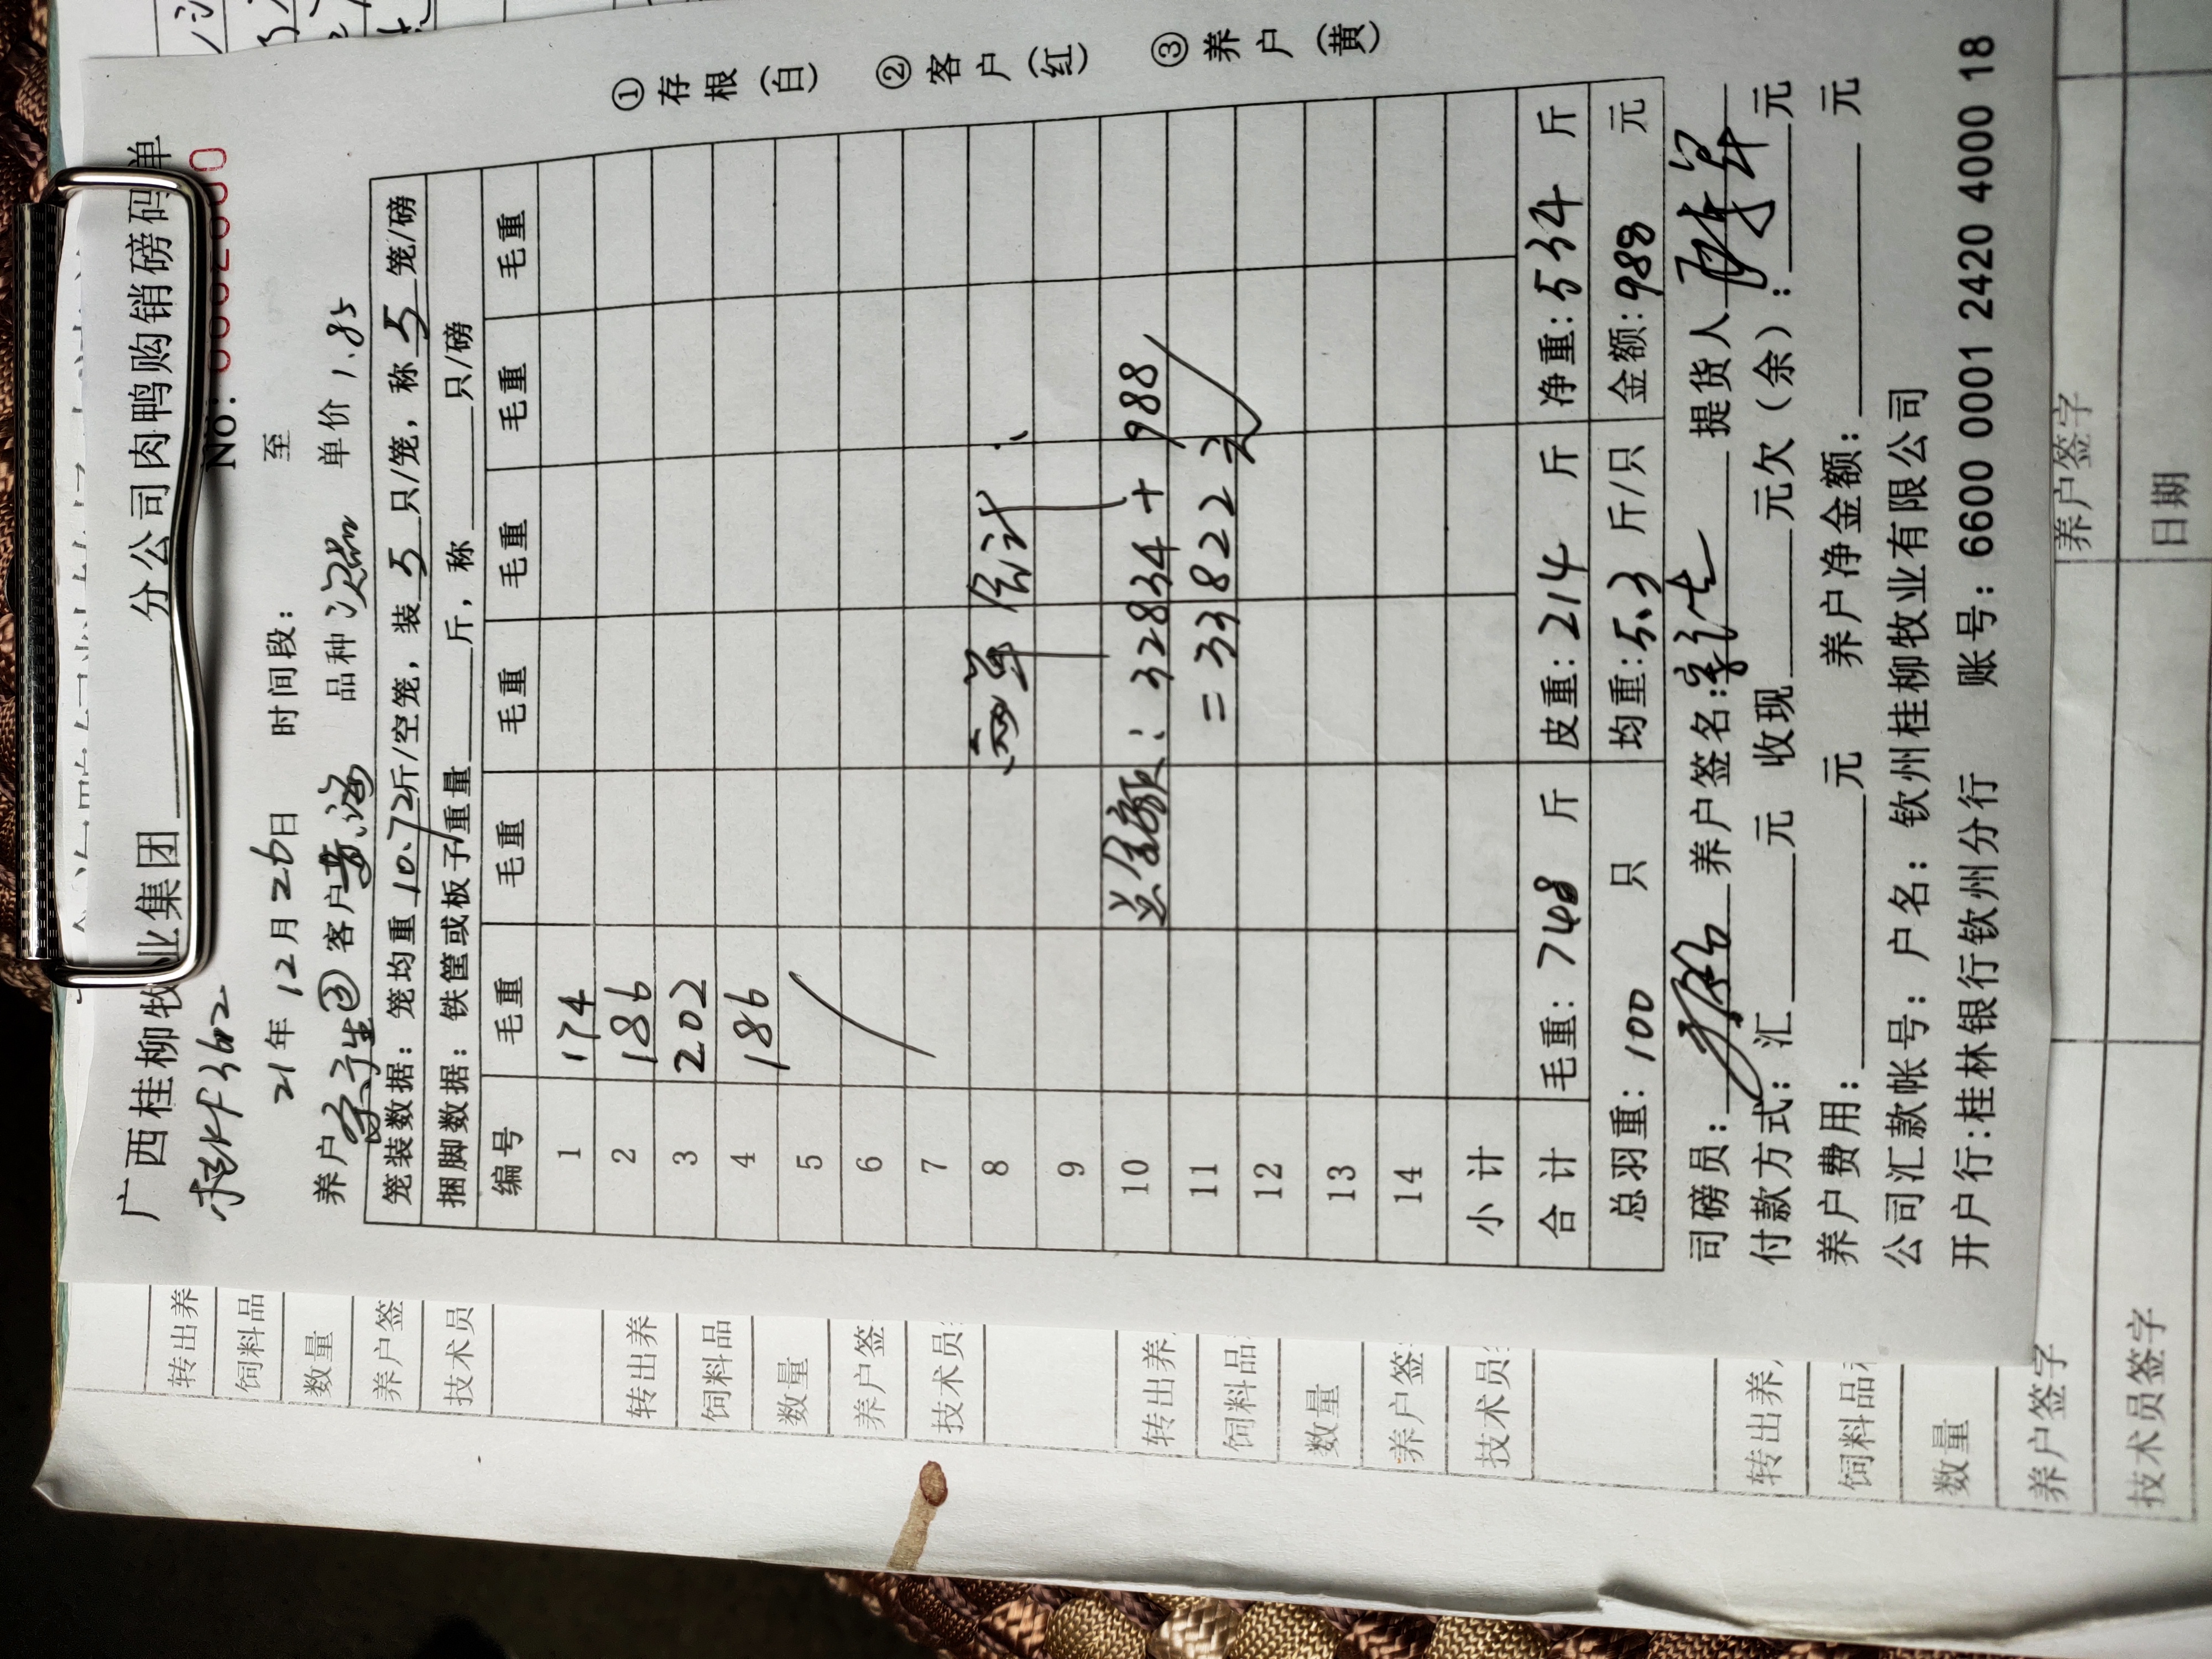 广西桂柳牧业集团 分公司肉鸭购销磅码单
No:
21年12月26日 时间段: 至
养户 客户 品种 单价 1.85
笼装数据: 笼均重10.72斤/空笼, 装5只/笼, 称5笼/磅
捆脚数据: 铁筐或板子重量 斤, 称 只/磅
编号 毛重 毛重 毛重 毛重 毛重 毛重
1 174
2 186
3 202
4 186
5
6
7
8 两单合计:
9
10 总金额: 32834+988
11 =33822元
12
13
14
小计
合计 毛重: 748 斤 皮重: 214 斤 净重: 534 斤
总羽重: 100 只 均重: 5.3 斤/只 金额: 988 元
司磅员: 养户签名: 提货人
付款方式: 汇 元 收现 元欠(余): 元
养户费用: 元 养户净金额: 元
公司汇款帐号: 户名: 钦州桂柳牧业有限公司
开户行:桂林银行钦州分行 账号: 6600 0001 2420 4000 18
①存根(白) ②客户(红) ③养户(黄)
转出养
饲料品
数量
养户签
技术员
转出养
饲料品
数量
养户签
技术员
转出养
饲料品
数量
养户签
技术员
转出养
饲料品
数量
养户签字 养户签字
技术员签字 日期